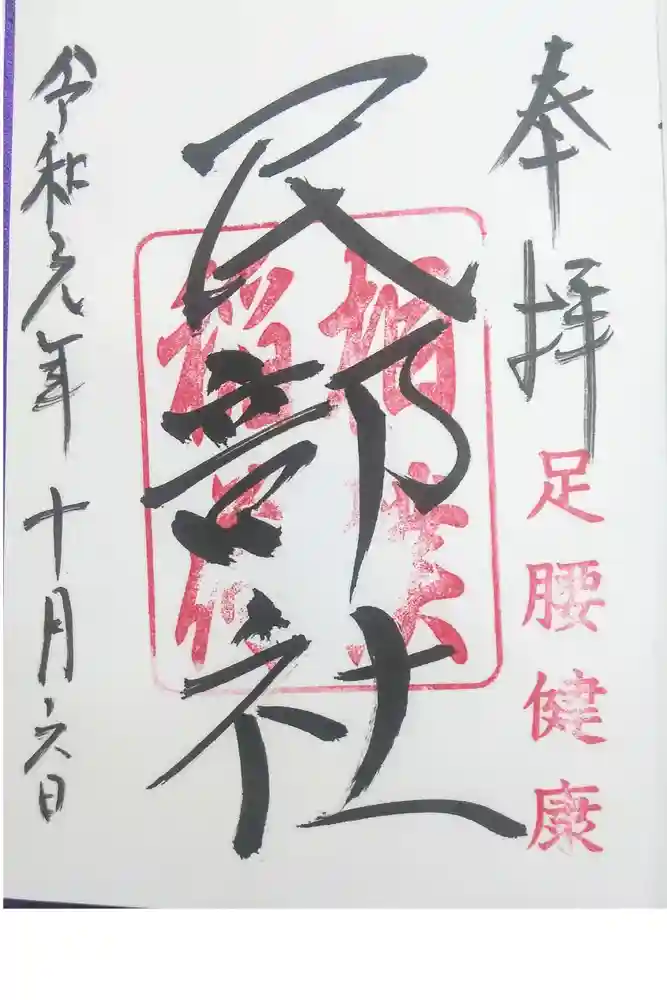 奉拝
足腰健康
民部社
令和元年十月六日